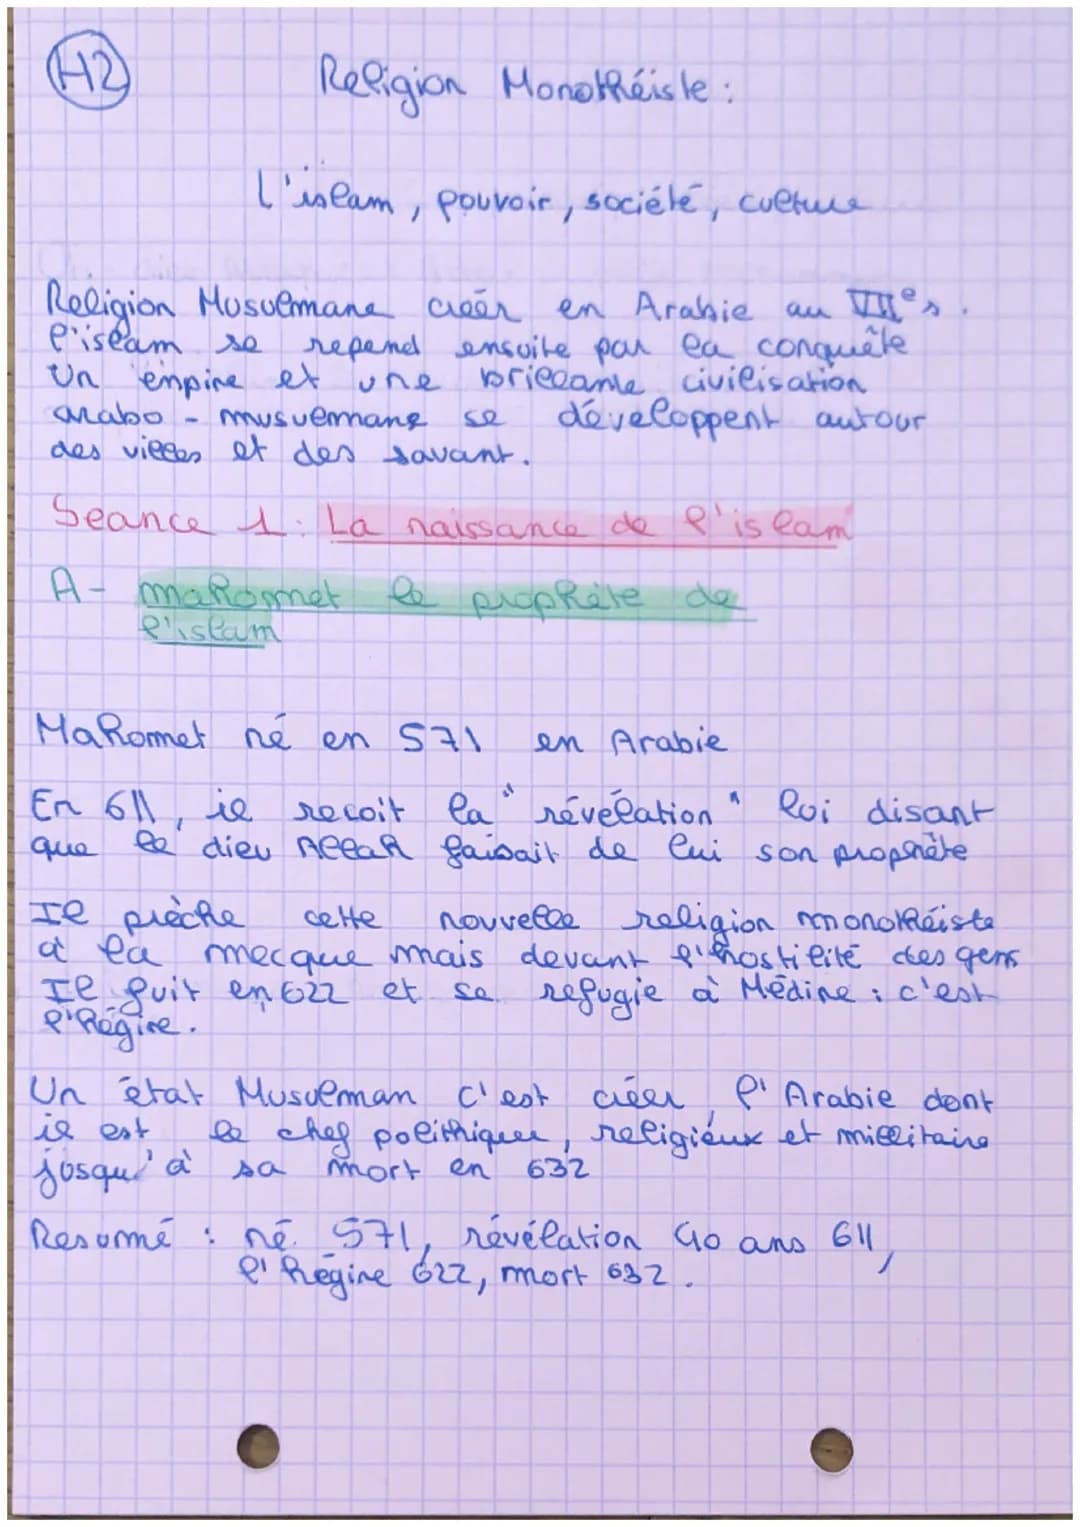 H2
Religion Monothéiste :
L'islam, pouvoir, société, culture
Religion Musulmane créér en Arabie au VIIe s.
l'islam se repend ensuite par la conquête
Un empire et une brillante civilisation
arabo - musulmane se développent autour
des villes et des savant.
Seance 1 : La naissance de l'islam
A - mahomet le prophète de
l'islam
Mahomet né en 571 en Arabie
En 611, il recoit la "révélation" loi disant
que le dieu Allah faisait de lui son prophète
Il prèche cette nouvelle religion monothéiste
à la mecque mais devant l'hostilité des gens
Il fuit en 622 et se refugie à Médine : c'est
l'hégire.
Un état Musulman c'est créer, l'Arabie dont
il est le chef polithiquer, religiéux et millitaire
jusqu'à sa mort en 632
Resumé : né 571, révélation 40 ans 611,
l'hégire 622, mort 632.